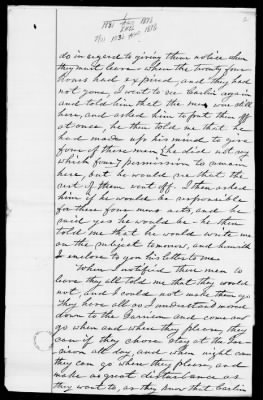 2
1731 AGO 1878
Encl
7/11 1731 AGO 1878
do in regard to giving them notice when
they must leave. When the twenty four
hours had expired, and they had
not gone, I went to see Carlin again
and told him that the men were still
here, and asked him to put them off
at once, he then told me that he
had made up his mind to give
four of these men (he did not say
which four) permission to remain
here, but he would see that the
rest of them went off. I then asked
him if he would be responsible
for these four mens acts, and he
said yes he would be. he then
told me that he would write me
on the subject tomorrow, and herewith
I enclose to you his letter to me.
When I notified these men to
leave they all told me that they would
not, and I could not make them go.
They have all as I understand moved
down to the Garrison and come and
go when and where they please, they
can if they chose stay at the Gar-
rison all day, and when night comes
they can go where they please, and
make as great disturbance as
they want to, as they know that Carlin